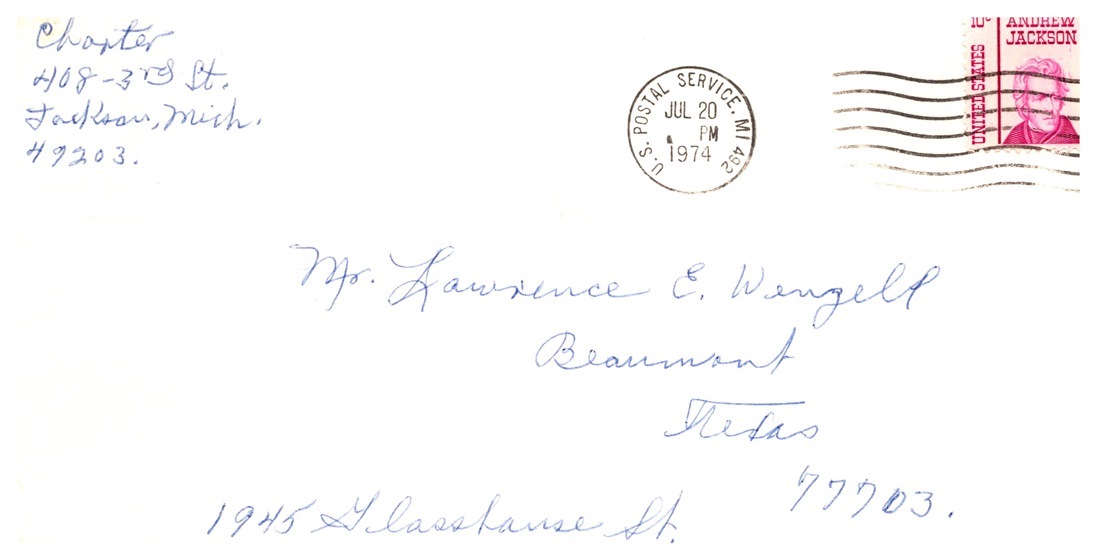 Chapter
408-3rd St.
Jackson, Mich.
49203.
U.S. POSTAL SERVICE, MI 492
JUL 20
PM
1974
10c
ANDREW
JACKSON
UNITED STATES
Mr. Lawrence E. Wengell
Beaumont
Texas
77703.
1945 Glasshouse St.